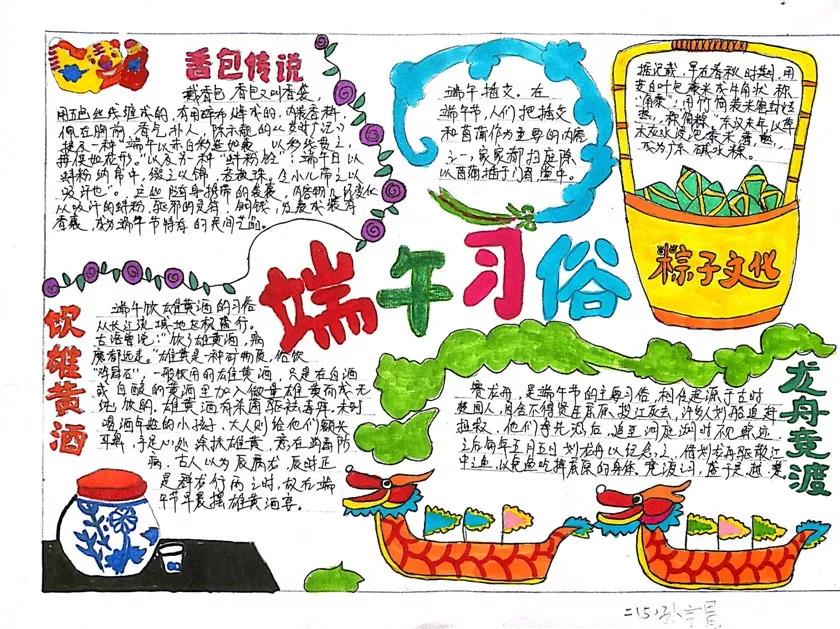 香包传说
戴香包 香包又叫香袋,
用五色丝线缠成的,有用碎布缝成的,内装香料,
佩在胸前,香气扑人,陈示靓的《岁时广记》
提及一种"端午以赤白彩造如囊,以彩线贯之,
搐使如花形。"以及另一种"蚌粉铃":端午日以
蚌粉纳帛中,缀之以绵,若数珠。令小儿带之以
吸汗也"。这些随身携带的袋囊,内容物几经变化
从吸汗的蚌粉,驱邪的灵符,铜钱,发展成装有
香囊,成为端午节特有的民间艺品。
端午插艾。在
端午节,人们把插艾
和菖蒲作为重要的内容
之一,家家都扫庭除
以菖蒲插于门眉,堂中。
据记载,早在春秋时期,用
"角黍";用竹筒装米密封烤
粽子文化
端午习俗
饮雄黄酒
端午饮雄黄酒的习俗
从长江流域地区极盛行。
古语曾说:"饮了雄黄酒,病
魔都远走。"雄黄是一种矿物质,俗叫
"鸡冠石",一般饮用的雄黄酒,只是在白酒
或自酿的黄酒里加入微量雄黄而成无
纯饮的。雄黄酒有杀菌驱虫解毒,未到
喝酒年龄的小孩子,大人则给他们额头
耳鼻,手足心处涂抹雄黄,意在消毒防
病,古人以为辰属龙,辰时正
是群龙行雨之时,故在端
龙舟竞渡
赛龙舟,是端午节的主要习俗,相传起源于古时
楚国人,因舍不得贤臣屈原投江死去,许多人划船追赶
拯救,他们争先恐后,追至洞庭湖时不见踪迹
之后每年五月五日划龙舟以纪念之,借划龙舟驱散江
中之鱼,以免鱼吃掉屈原的身体。竞渡之习,盛于吴越楚
二(5)